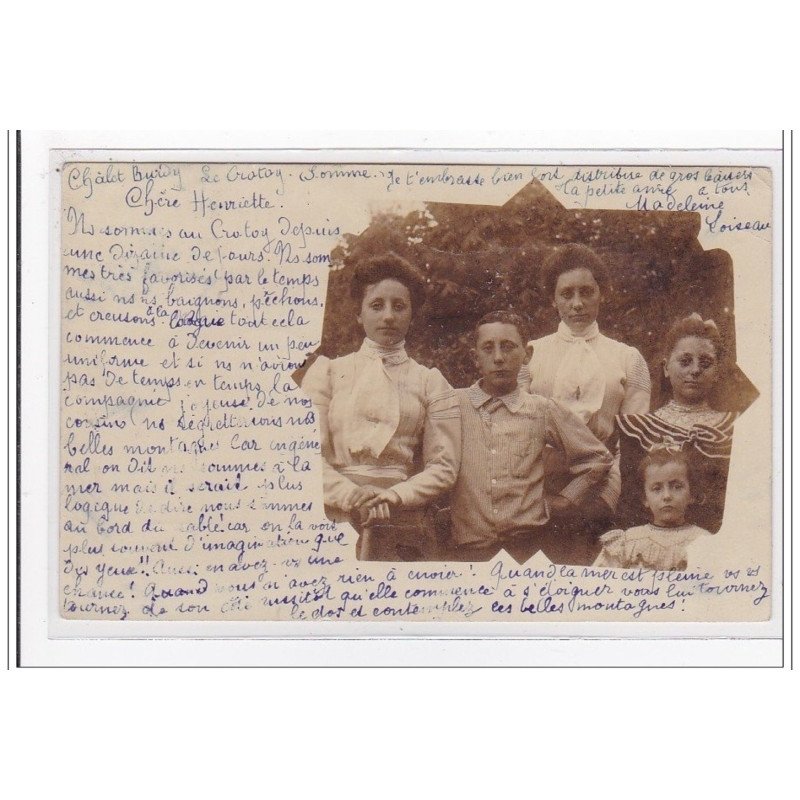 Châlet Burdy Le Crotoy - Somme. Je t'embrasse bien fort, distribue de gros baisers
ta petite amie à tous
Madeleine
Loiseau
Chère Henriette.
Ns sommes au Crotoy depuis
une dizaine de jours. Ns som
mes très favorisés par le temps
aussi ns ns baignons, pêchons,
et creusons à la tout cela
commence à devenir un peu
uniforme et si ns n'avions
pas de temps en temps la
compagnie joyeuse de nos
cousins ns regretterions nos
belles montagnes Car en géné
ral on dit ns sommes à la
mer mais il serait plus
logique de dire nous sommes
au bord du sable car on la voit
plus souvent d'imagination que
des yeux!! Aussi en avez-vs une
chance! Quand vous n'avez rien à envier! Quand la mer est pleine vs vs
tournez de son côté aussitôt qu'elle commence à s'éloigner vous lui tournez
le dos et contemplez ces belles montagnes!